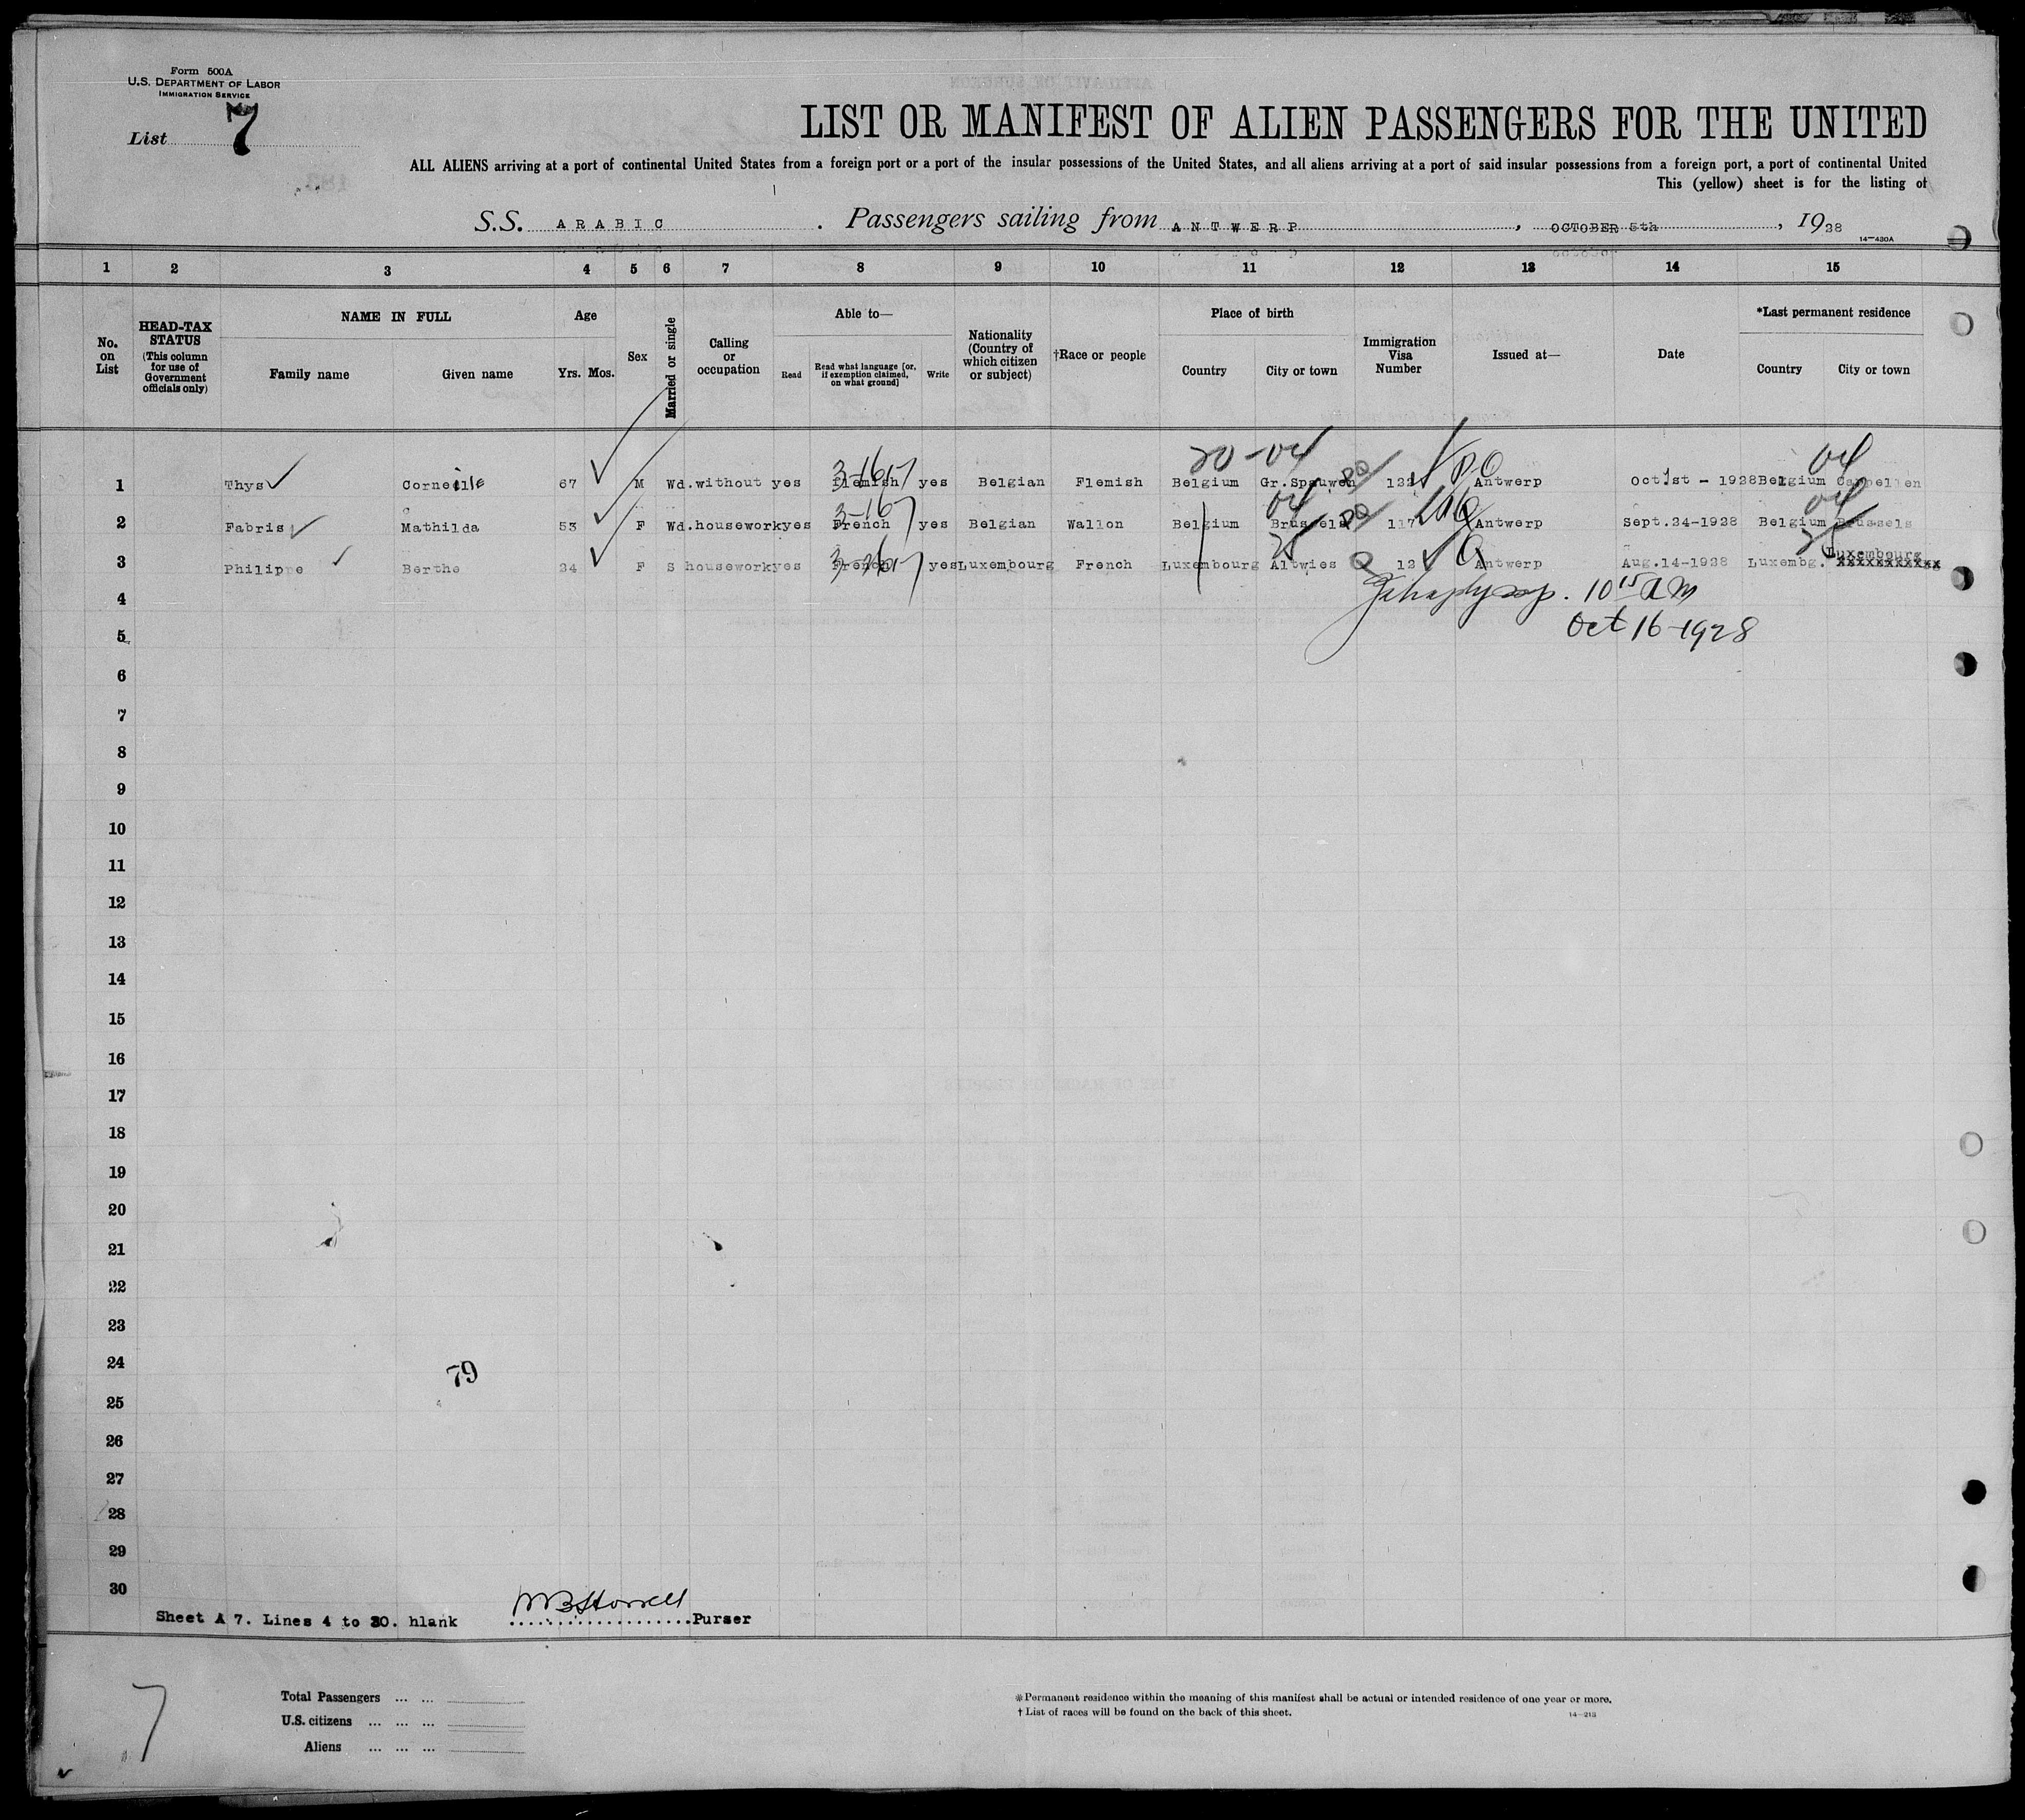 Form 500A
U.S. DEPARTMENT OF LABOR
IMMIGRATION SERVICE
List 7
LIST OR MANIFEST OF ALIEN PASSENGERS FOR THE UNITED
ALL ALIENS arriving at a port of continental United States from a foreign port or a port of the insular possessions of the United States, and all aliens arriving at a port of said insular possessions from a foreign port, a port of continental United
This (yellow) sheet is for the listing of
S.S. ARABIC . Passengers sailing from ANTWERP , OCTOBER 5th , 1928
14—430A
1 2 3 4 5 6 7 8 9 10 11 12 13 14 15
No. on List
HEAD-TAX STATUS (This column for use of Government officials only)
NAME IN FULL
Family name Given name
Age
Yrs. Mos.
Sex
Married or single
Calling or occupation
Able to—
Read Read what language [or, if exemption claimed, on what ground] Write
Nationality (Country of which citizen or subject)
†Race or people
Place of birth
Country City or town
Immigration Visa Number
Issued at—
Date
*Last permanent residence
Country City or town
20-04 04
1 Thys Corneille 67 M Wd. without yes Flemish yes Belgian Flemish Belgium Gr.Spauwen PQ 122 Antwerp Oct.1st - 1928 Belgium Cappellen
3-167 04 04
2 Fabris Mathilda 53 F Wd. housework yes French yes Belgian Wallon Belgium Brussels PQ 117 Antwerp Sept.24-1928 Belgium Brussels
25 25
3 Philippe Berthe 24 F S housework yes French yes Luxembourg French Luxembourg Altwies Q 12 Antwerp Aug.14-1928 Luxembg. Luxembourg xxxxxxxxxxx
4 10 15 AM
5 Oct 16-1928
6
7
8
9
10
11
12
13
14
15
16
17
18
19
20
21
22
23
24 79
25
26
27
28
29
30
Sheet A 7. Lines 4 to 30. hlank ..................Purser
7
Total Passengers ... ...
U.S. citizens ... ... ...
Aliens ... ... ...
*Permanent residence within the meaning of this manifest shall be actual or intended residence of one year or more.
†List of races will be found on the back of this sheet.
14—213